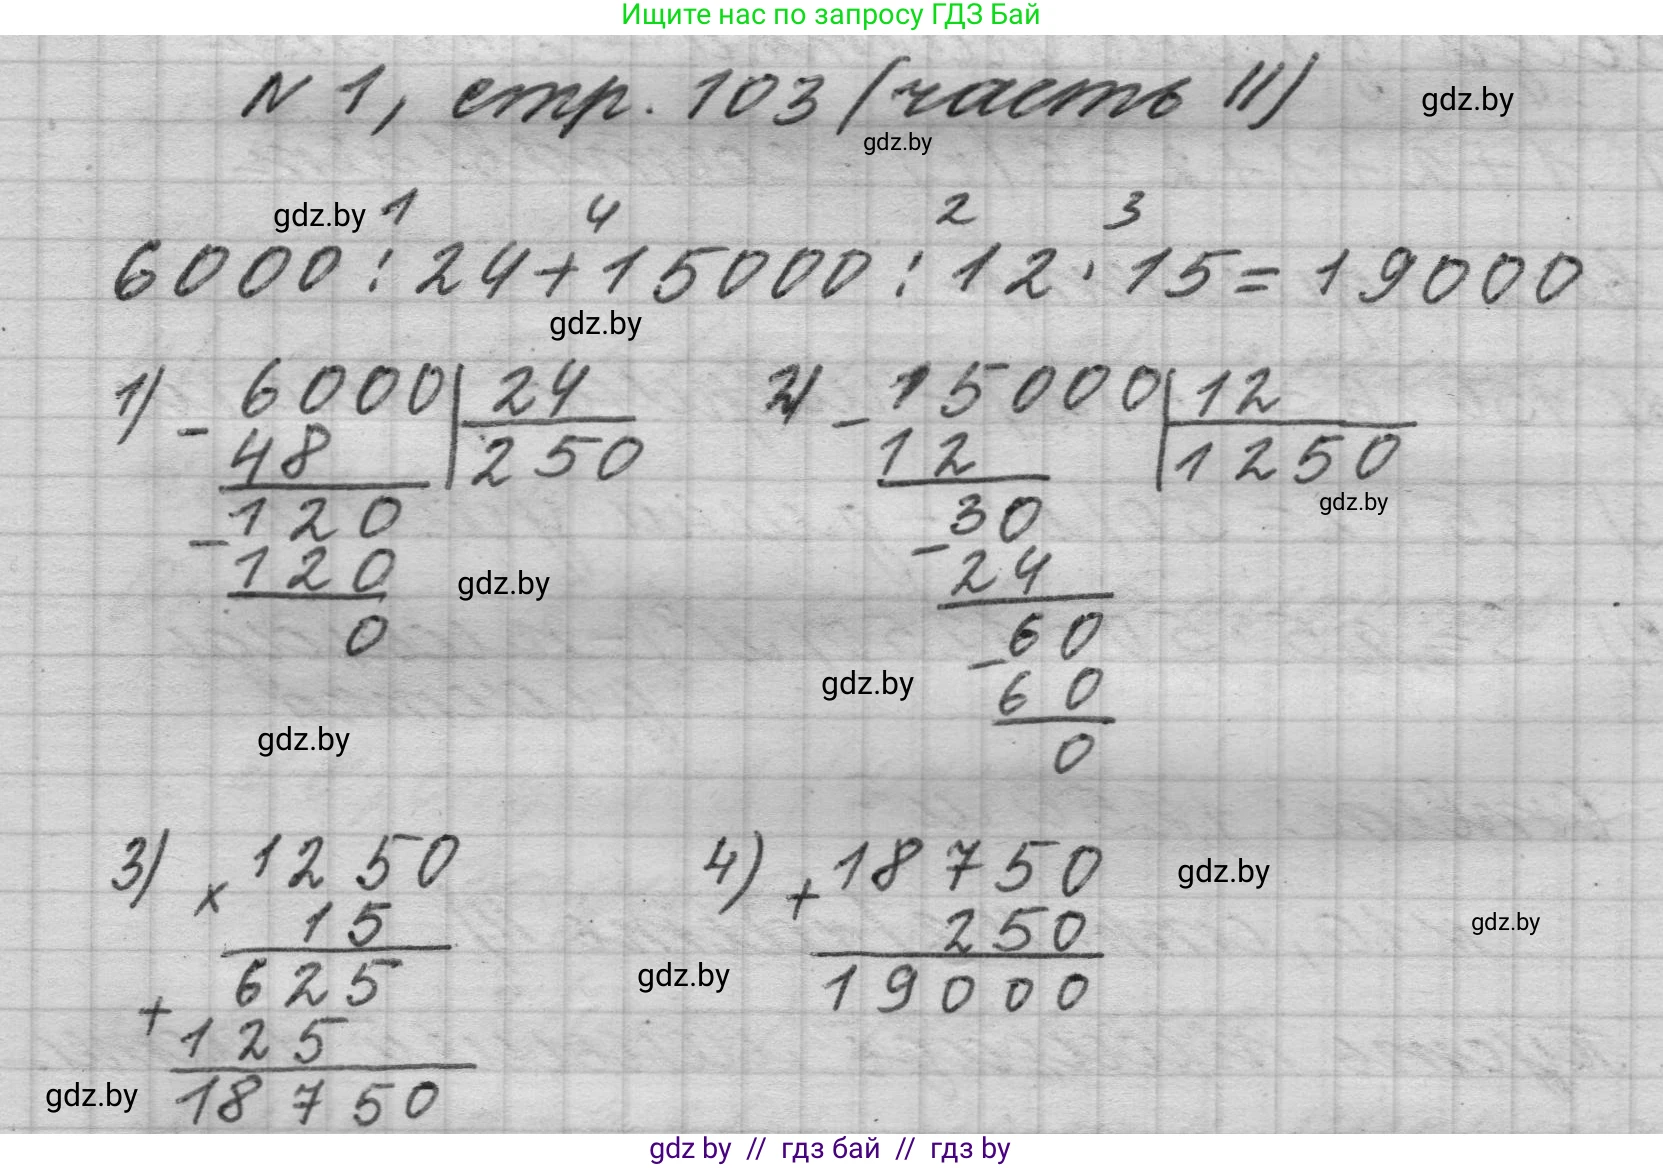 Ищите нас по запросу ГДЗ Бай
N 1, стр. 103 (часть II)
gdz.by
gdz.by
gdz.by
1 4 2 3
6000 : 24 + 15000 : 12 · 15 = 19000
gdz.by
1) 6000 | 24
- 48 | 250
120
- 120
0
2) 15000 | 12
- 12 | 1250
30
- 24
60
- 60
0
gdz.by
gdz.by
gdz.by
gdz.by
3) 1250
x 15
625
+ 125
18750
4) 18750
+ 250
19000
gdz.by
gdz.by
gdz.by
gdz.by
gdz by // гдз бай // гдз by